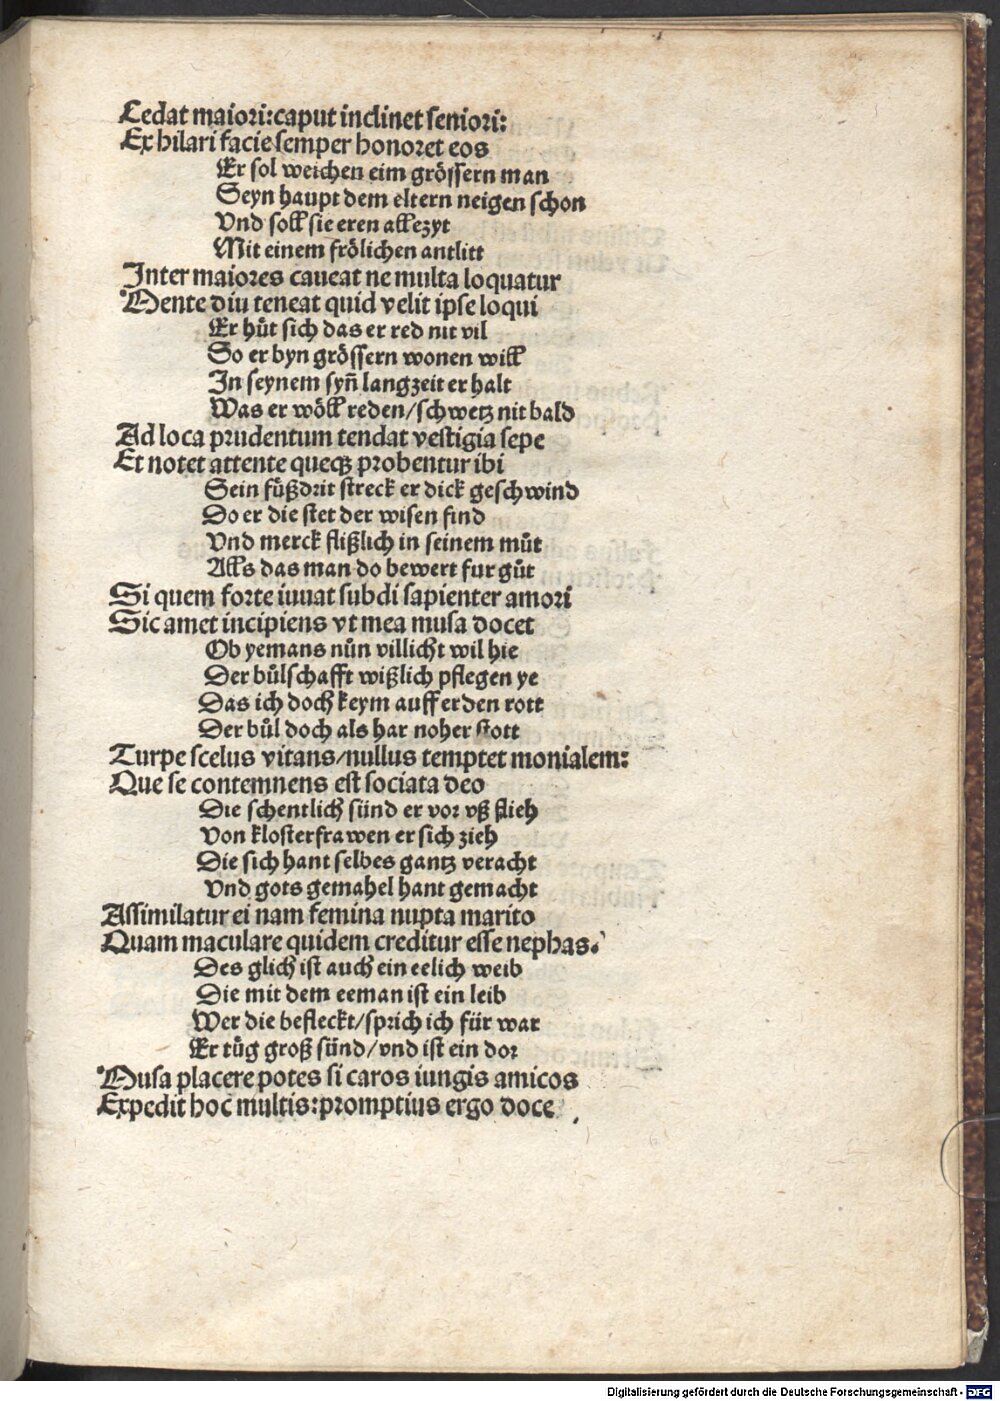 Cedat maiori:caput inclinet seniori:
Ex hilari facie semper honoret eos
Er sol weichen eim grössern man
Seyn haupt dem eltern neigen schon
Vnd soll sie eren allezyt
Mit einem frölichen antlitt
Inter maiores caueat ne multa loquatur
Mente diu teneat quid velit ipse loqui
Er hůt sich das er red nit vil
So er byn grössern wonen will
In seynem syn̄ langzeit er halt
Was er wöll reden/schwetz nit bald
Ad loca prudentum tendat vestigia sepe
Et notet attente queqꝫ probentur ibi
Sein fůßdrit streck er dick geschwind
Do er die stet der wisen find
Vnd merck flißlich in seinem můt
Alls das man do bewert fur gůt
Si quem forte iuuat subdi sapienter amori
Sic amet incipiens vt mea musa docet
Ob yemans nůn villicht wil hie
Der bůlschafft wißlich pflegen ye
Das ich doch keym auff erden rott
Der bůl doch als har noher stott
Turpe scelus vitans/nullus temptet monialem:
Que se contemnens est sociata deo
Die schentlich sünd er vor vß flieh
Von klosterfrawen er sich zieh
Die sich hant selbes gantz veracht
Vnd gots gemahel hant gemacht
Assimilatur ei nam femina nupta marito
Quam maculare quidem creditur esse nephas.
Des glich ist auch ein eelich weib
Die mit dem eeman ist ein leib
Wer die befleckt/sprich ich für war
Er tůg groß sünd/vnd ist ein dor
Musa placere potes si caros iungis amicos
Expedit hoc multis:promptius ergo doce
Digitalisierung gefördert durch die Deutsche Forschungsgemeinschaft - DFG